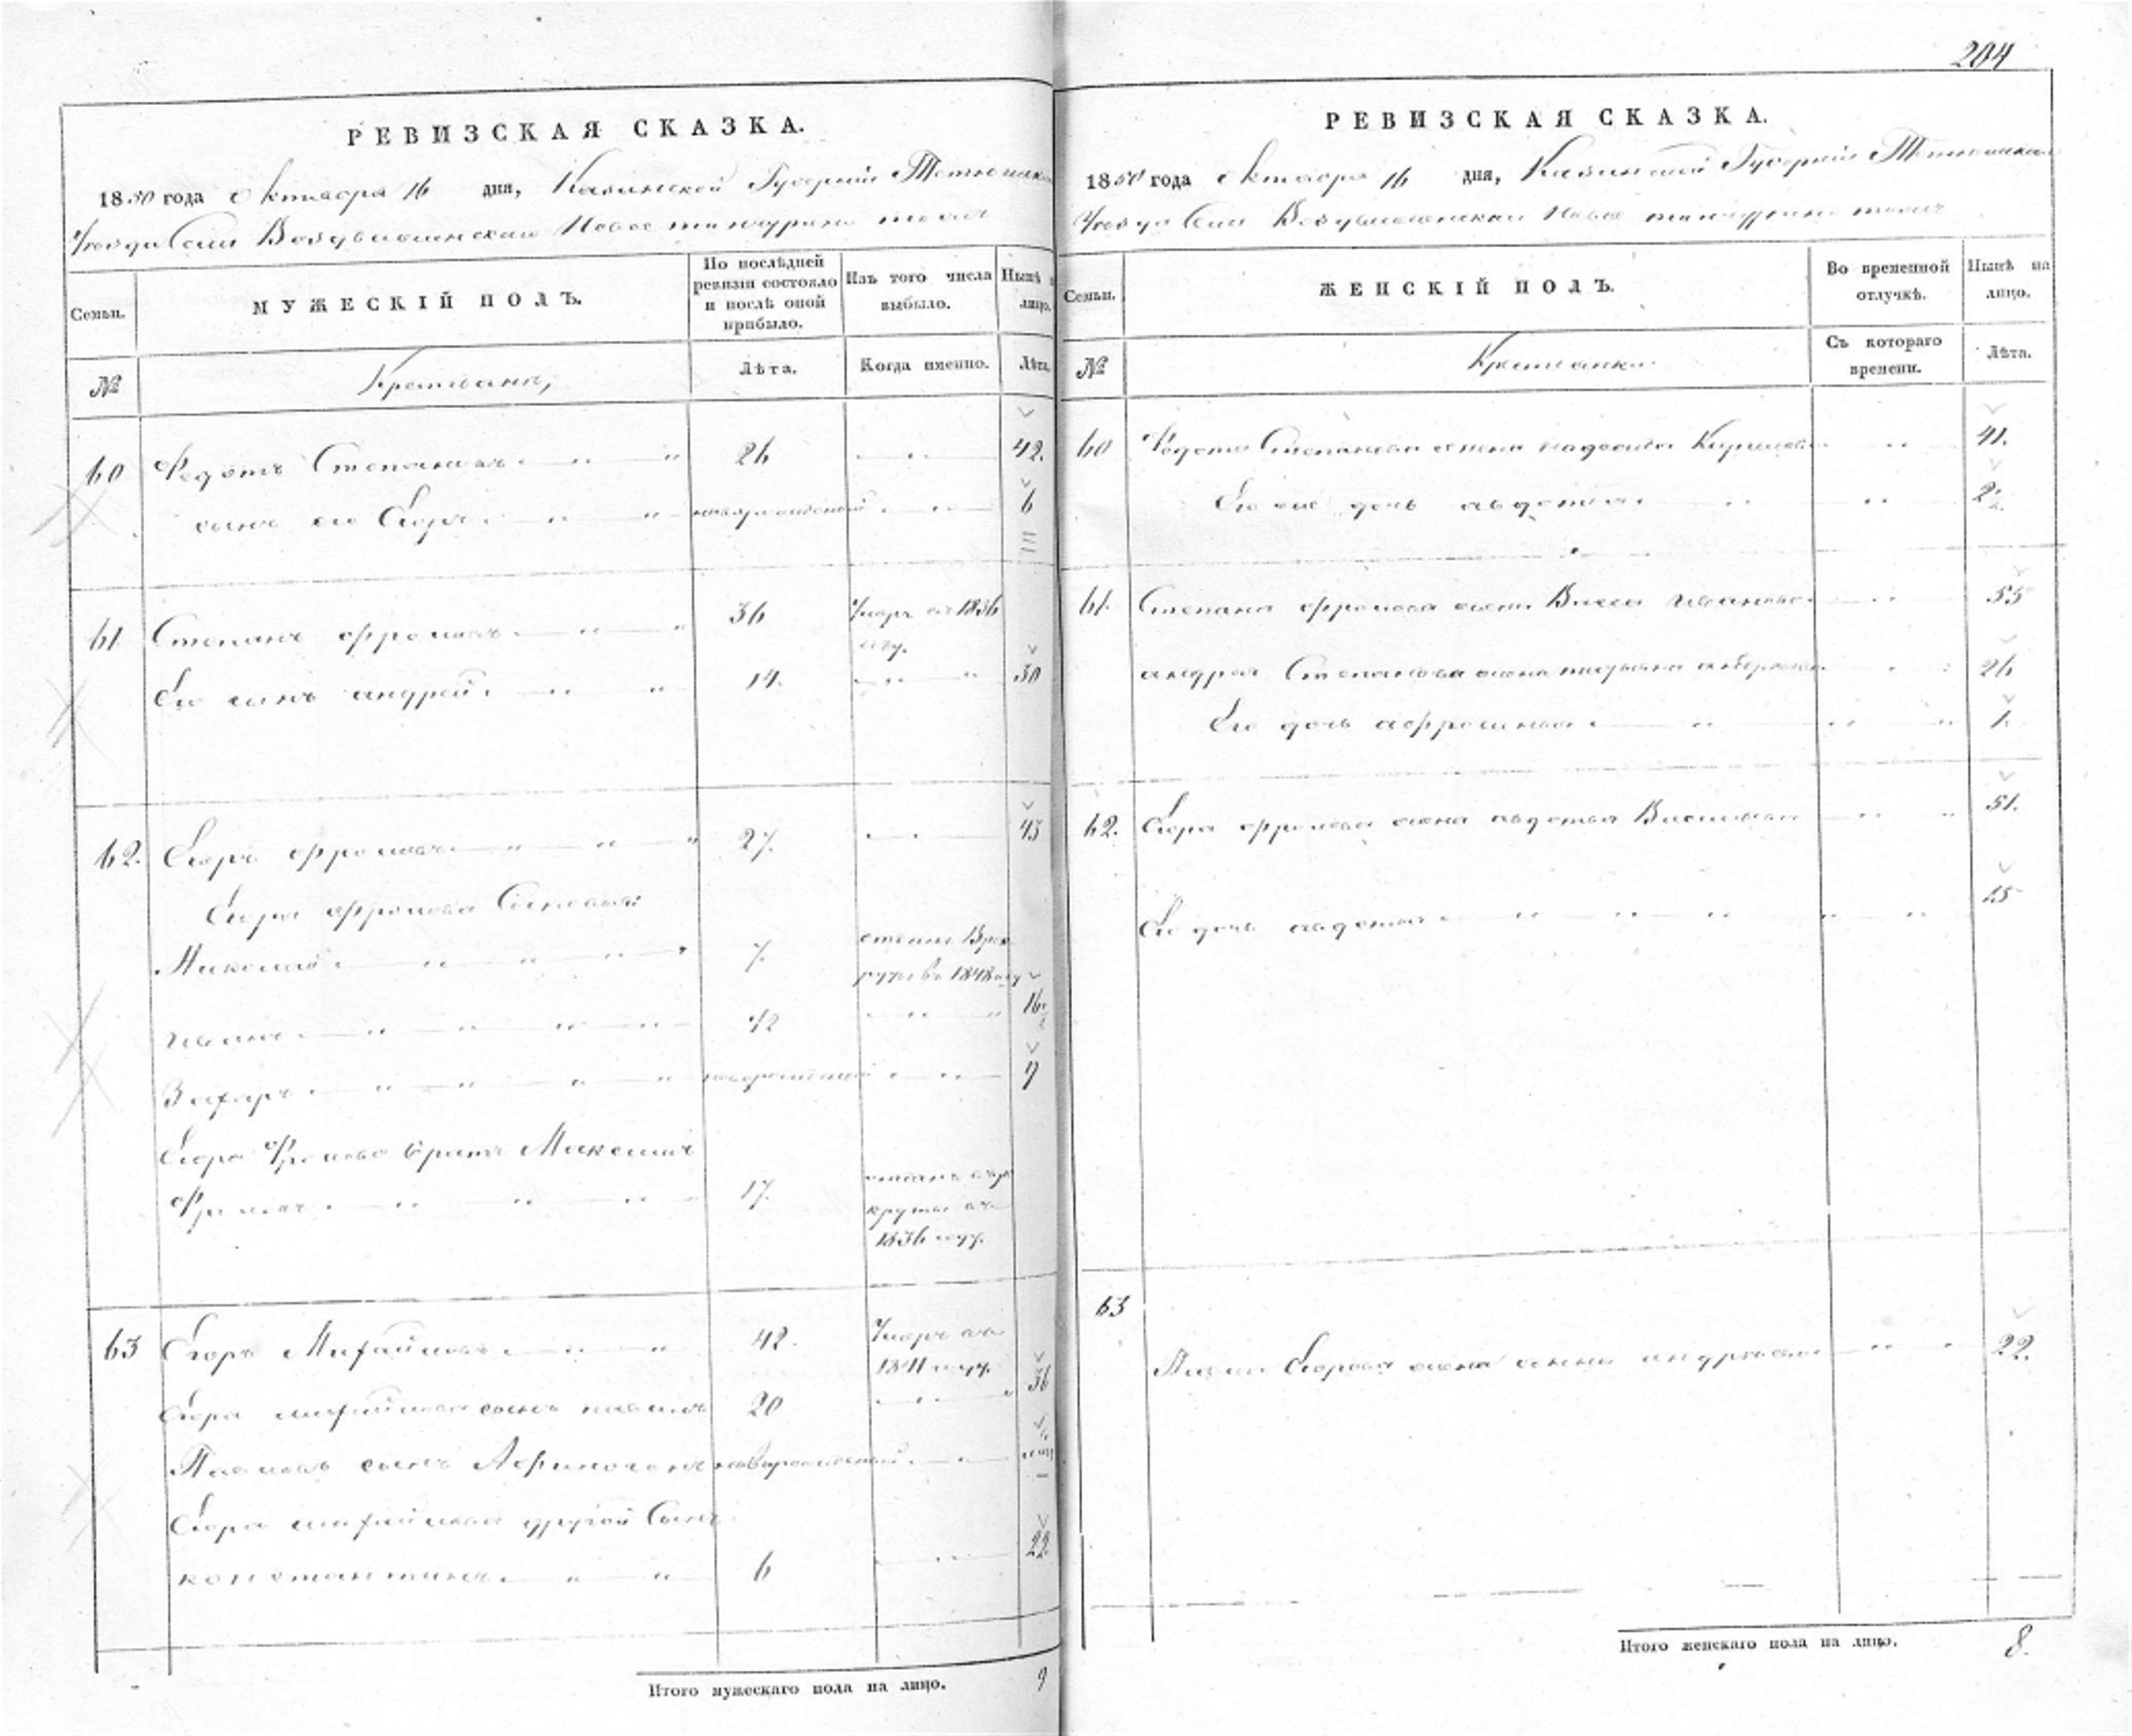 204
РЕВИЗСКАЯ СКАЗКА.
1850 года Октября 16 дня, Казанской Губернии Тетюшска
Уезда Села Воздвиженскаго Новое тинчурино тожъ
Семьи. МУЖЕСКІЙ ПОЛЪ. По послѣдней ревизіи состояло и послѣ оной прибыло. Изъ того числа выбыло. Нынѣ на лицо.
№ Крестьяне, Лѣта. Когда именно. Лѣта.
60 Федотъ Степановъ 26 42.
сынъ его Егоръ новорожденный 6
61. Степанъ Фроловъ 36 Умеръ въ 1836 году.
Его сынъ андрей 14. 30
62. Егоръ Фроловъ 27. 43
Егора Фролова Сыновья
Николай 7. отданъ В рекруты въ 1848 году
иванъ 1/2 16 1/2
Захаръ новорожденный 9
Егора Фролова братъ Максимъ
Фроловъ 17. отданъ въ рекруты въ 1836 году.
63 Егоръ Михайловъ 42. Умеръ въ 1841 году.
Егора михайлова сынъ павелъ 20 36
Павловъ сынъ новорожденный
Егора михайлова другой Сынъ
константинъ 6 22
Итого мужескаго пола на лицо. 9
РЕВИЗСКАЯ СКАЗКА.
1850 года Октября 16 дня, Казанской Губернии Тетюшска
Уезда Села Воздвиженскаго Новое тинчурино тожъ
Семьи. ЖЕНСКІЙ ПОЛЪ. Во временной отлучкѣ. Нынѣ на лицо.
№ Крестьянки Съ котораго времени. Лѣта.
60 Федота Степанова жена Кирилова 41.
Его же дочь авдотья
61. Степана Фролова жена Васса иванова 55
андрея Степанова жена 26
Его дочь афросинья 1.
62. Егора Фролова жена авдотья Васильева 51.
Его дочь авдотья 15
63
Павла Егорова жена анна андреева 22.
Итого женскаго пола на лицо. 8.